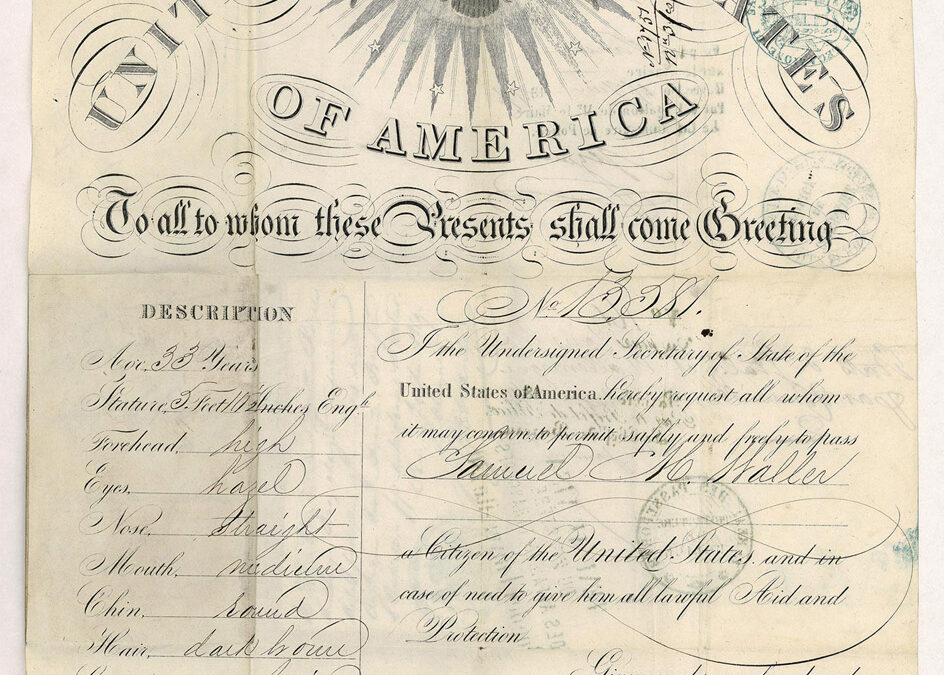 UNITED STATES
OF AMERICA
To all to whom these Presents shall come Greeting
DESCRIPTION
Age, 33 Years
Stature, 5 Feet 10 1/2 Inches Eng.
Forehead, high
Eyes, hazel
Nose, straight
Mouth, medium
Chin, round
Hair, dark brown
No 13381.
I the Undersigned Secretary of State of the
United States of America. hereby request all whom
it may concern to permit safely and freely to pass
Samuel M. Waller
a Citizen of the United States and in
case of need to give him all lawful Aid and
Protection
Given under my hand and